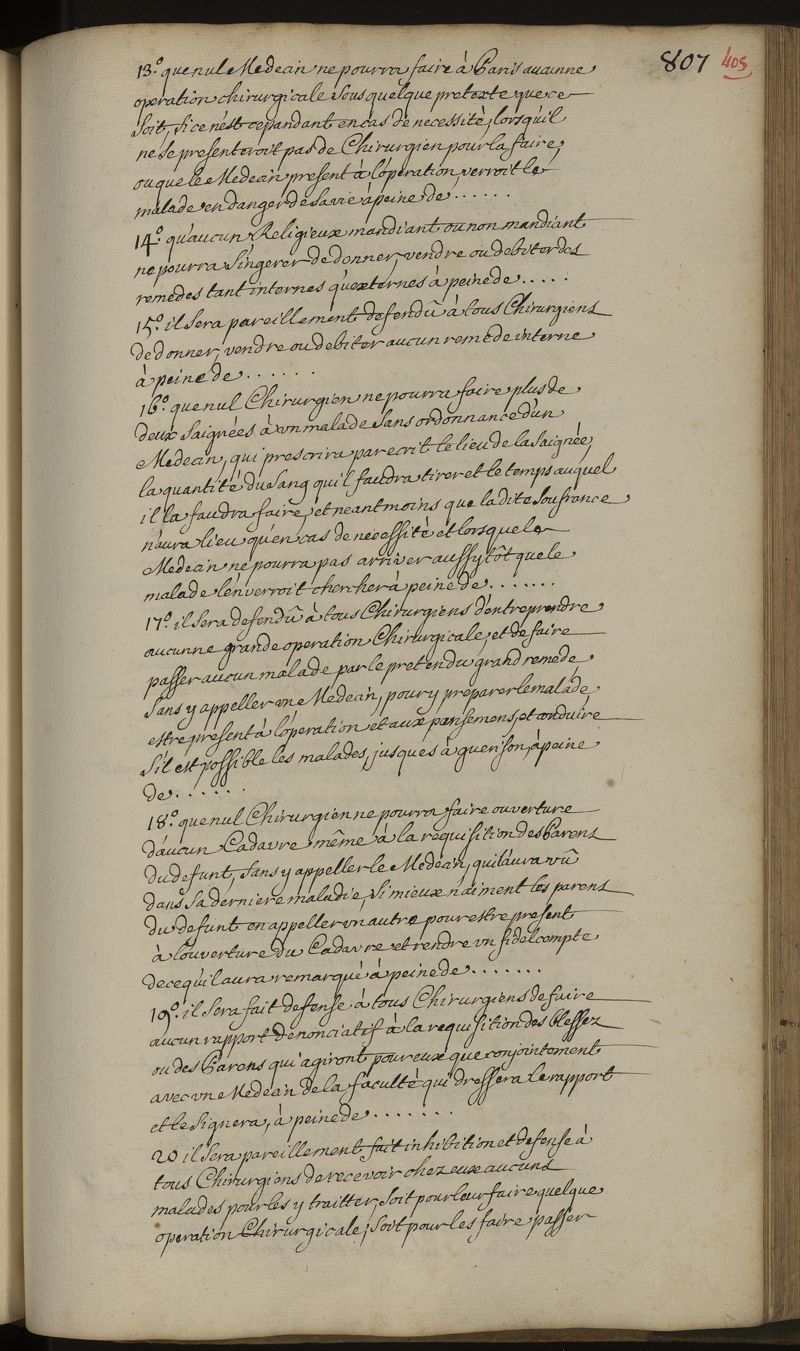 807 403
13.º que nul Medecin ne pourra faire à Paris aucunne
operation chirurgicale sous quelque pretexte que ce
soit, si ce n'est cepandant en cas de necessité, lorsqu'il
ne se presenteroit pas de Chirurgien pour la faire,
ou que le Medecin present à l'operation verroit le
malade en danger de sa vie à peine de . . . . . .
14.º qu'aucun Religieux mandiant ou non mandiant
ne pourra s'ingerer de donner, vendre ou debiter des
remedes tant internes qu'externes à peine de . . . . .
15.º il sera pareillement defendû à tous Chirurgiens
de donner, vendre ou debiter aucun remede interne
à peine de . . . . . .
16.º que nul Chirurgien ne pourra faire plus de
deux saignées à vn malade sans ordonnance d'un
Medecin, qui prescrira par ecrit le lieu de la saignée,
la quantité du sang qu'il faudra tirer et le temps auquel
il la faudra faire, et neantmoins que la dite soufrance
n'aura lieu qu'en cas de necessité et lorsque le
Medecin ne pourra pas arriver aussytôt que le
malade l'enverroit chercher à peine de . . . . . . .
17.º il sera defendû à tous Chirurgiens d'entreprendre
aucunne grande operation Chirurgicale, et de faire
passer aucun malade par le pretendu grand remede
sans y appeller vne Medecin, pour y preparer le malade
estre present à l'operation et aux pansemens, et conduire
s'il est possible les malades, jusques à guerison, à peine
de . . . . . .
18.º que nul Chirurgien ne pourra faire ouverture
d'aucun Cadavre même à la requisition des Parens
du defunt, sans y appeller le Medecin, qui l'aura vû
dans sa derniere maladie, si mieux n'aiment les parens
du defunt en appeller vn autre pour estre present
à l'ouverture du Cadavre et rendre vn fidel compte
de ce qu'il aura remarqué à peine de . . . . . . .
19.º il sera fait defense à tous Chirurgiens de faire
aucun rapport denonciatif à la requisition des blessez
ou des Parens qui agiront pour eux que conjointement
avec vne Medecin de la faculté qui dressera le rapport
et le signera, à peine de . . . . . . .
20 il sera pareillement fait inhibition et defense à
tous Chirurgiens de recevoir chez eux aucuns
malades pour les y traitter, soit pour leur faire quelque
operation Chirurgicale, soit pour les faire passer